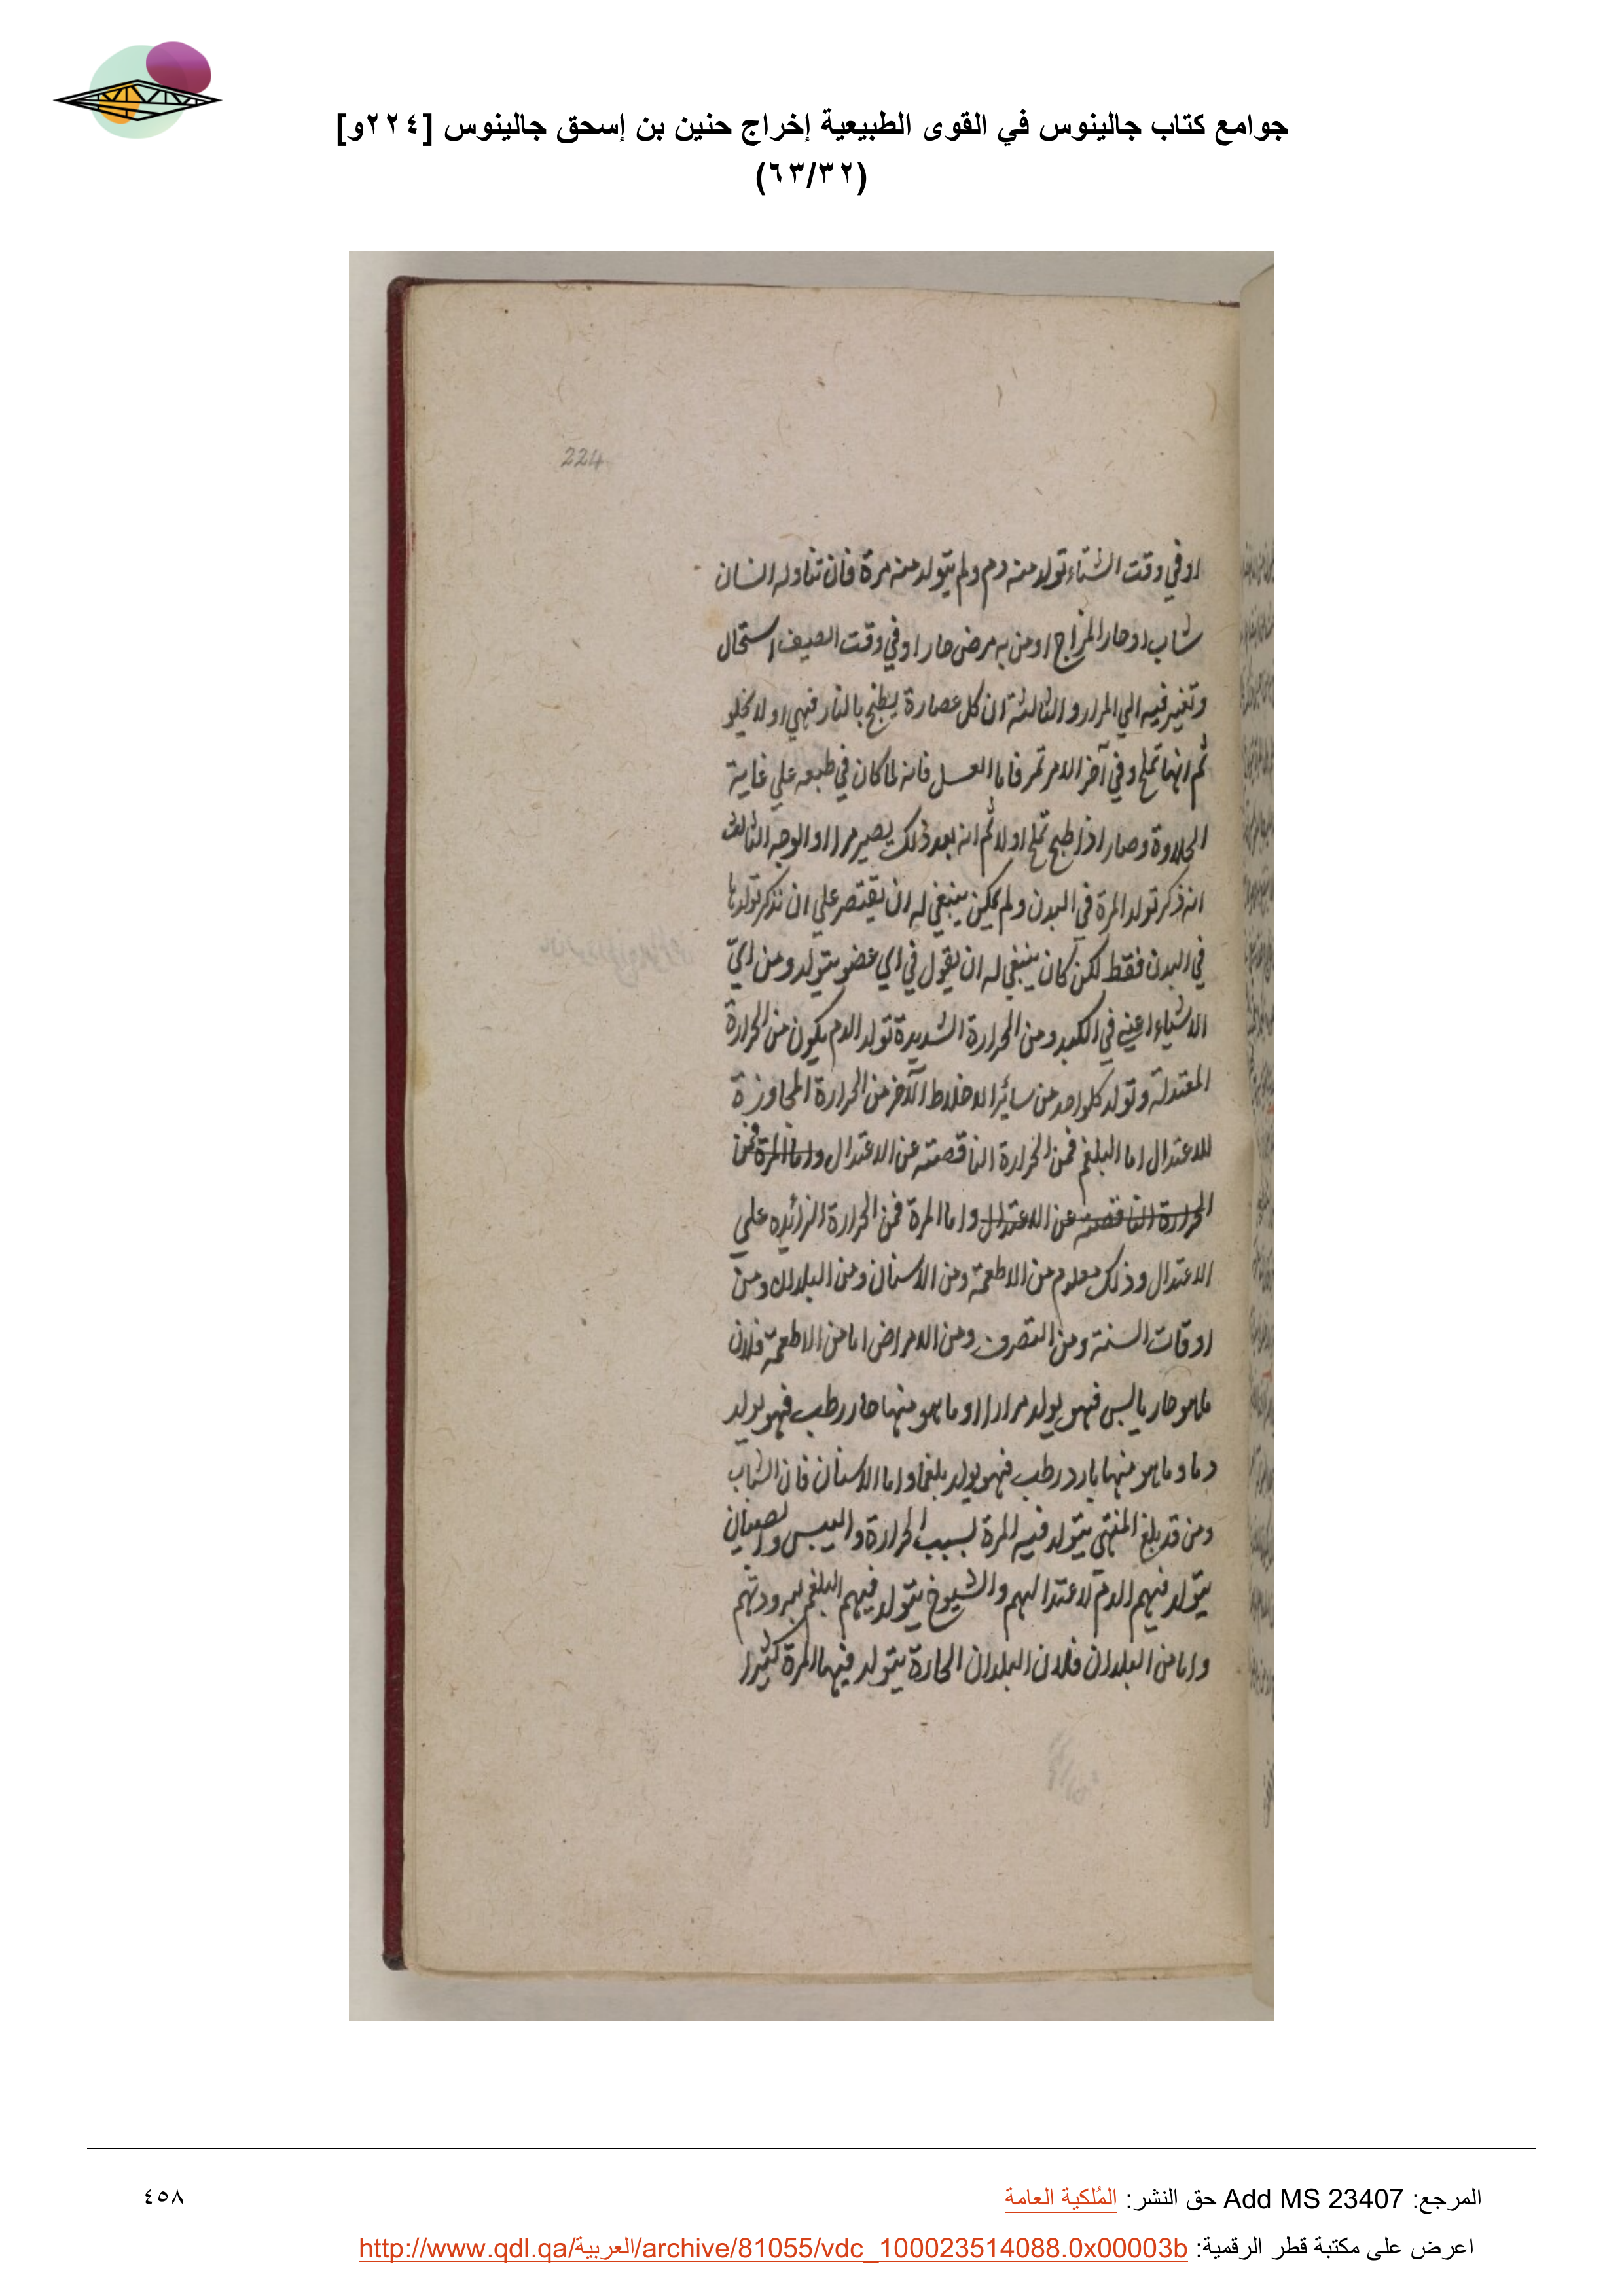 جوامع كتاب جالينوس في القوى الطبيعية إخراج حنين بن إسحق جالينوس [٢٢٤و]
(٦٣/٣٢)
224
او في وقت الشتاء تولد منه دم ولم يتولد منه مرة فان تناوله انسان
شاب او حار المزاج او من به مرض حار او في وقت الصيف استحال
وتغير فيه الي المرار والثالثة ان كل عصارة يطبخ بالنار فهي اولا تحلو
ثم انها تملح وفي آخر الامر تمر فاما العسل فانه لما كان في طبعه علي غاية
الحلاوة وصار اذا طبخ تملح اولا ثم انه بعد ذلك يصير مرا والوجه الثالث
انه ذكر تولد المرة في البدن ولم يكن ينبغي له ان يقتصر علي ان نذكر تولدها
في البدن فقط لكن كان ينبغي له ان يقول في اي عضو يتولد ومن ايّ
الاشياء اعني في الكبد ومن الحرارة الشديدة تولد الدم يكون من الحرارة
المعتدلة وتولد كلواحد من سائر الاخلاط الآخر من الحرارة المجاوزة
للاعتدال اما البلغم فمن الحرارة الناقصة عن الاعتدال واما المرة فمن
الحرارة الناقصة عن الاعتدال واما المرة فمن الحرارة الزائده علي
الاعتدال وذلك معلوم من الاطعمة ومن الاسنان ومن البلدان ومن
اوقات السنة ومن التصرف ومن الامراض اما من الاطعمة فلان
ما هو حار يابس فهو يولد مرارا وما هو منها حار رطب فهو يولد
دما وما هو منها بارد رطب فهو يولد بلغما واما الاسنان فان الشاب
ومن قد بلغ المنتهي يتولد فيه المرة لسبب الحرارة واليبس والصبيان
يتولد فيهم الدم لاعتدالهم والشيوخ يتولد فيهم البلغم لبرودتهم
واما من البلدان فلان البلدان الحارة يتولد فيها المرة كثيرا
المرجع: Add MS 23407 حق النشر: المُلكية العامة
٤٥٨
اعرض على مكتبة قطر الرقمية: http://www.qdl.qa/العربية/archive/81055/vdc_100023514088.0x00003b